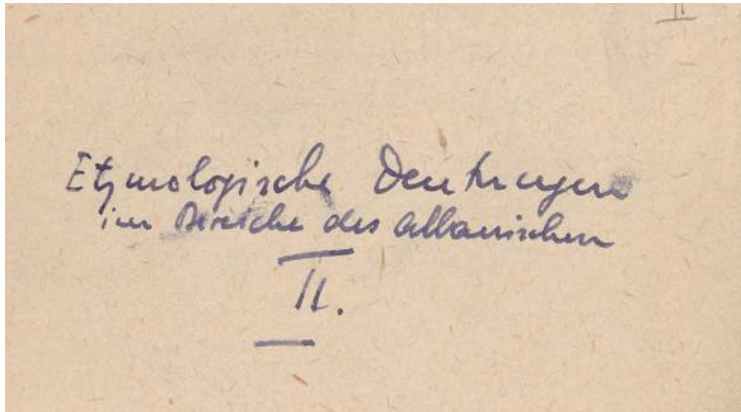 II
Etymologische Deutungen
im Bereiche des Albanischen
II.